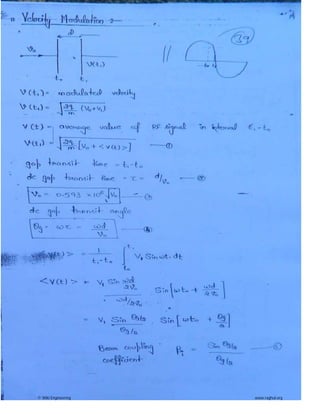 * Velocity Modulation :-
39
d
v₀
V(t₁)
t₀ t₁
V(t₁) = modulated velocity
V(t₁) = √(2q/m (V₀+V₁))
V(t) = average value of RF signal in interval t₁-t₀
V(t₁) = √(2q/m [V₀ + <V(t)>]) — ①
gap transit time = t₁-t₀
dc gap transit time = τ = d/V₀ — ②
V₀ = 0.593 × 10⁶ √V₀ — ③
dc gap transit angle
θg = ωτ = ωd/V₀ — ④
<V(t)> = 1/(t₁-t₀) ∫ V₁ Sin ωt. dt
<V(t)> = V₁ Sin ωd/2V₀ / ωd/2V₀ Sin[ωt₀ + ωd/2V₀]
= V₁ Sin θg/2 / θg/2 Sin[ωt₀ + θg/2]
Beam coupling coefficient βi = Sin θg/2 / θg/2 — ⑤
© Wiki Engineering www.raghul.org